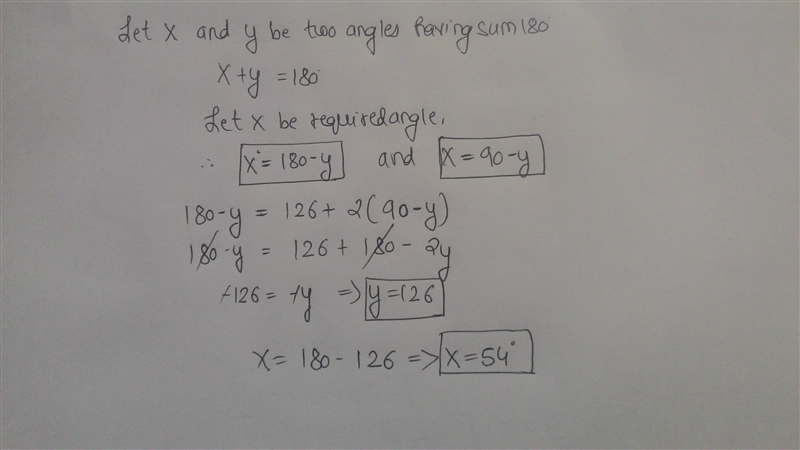 Let x and y be two angles having sum 180°
x+y = 180°
Let x be required angle,
∴ x° = 180-y and x = 90-y
180-y = 126 + 2(90-y)
180-y = 126 + 180 - 2y
-126 = -y => y=126
x = 180 - 126 => x = 54°